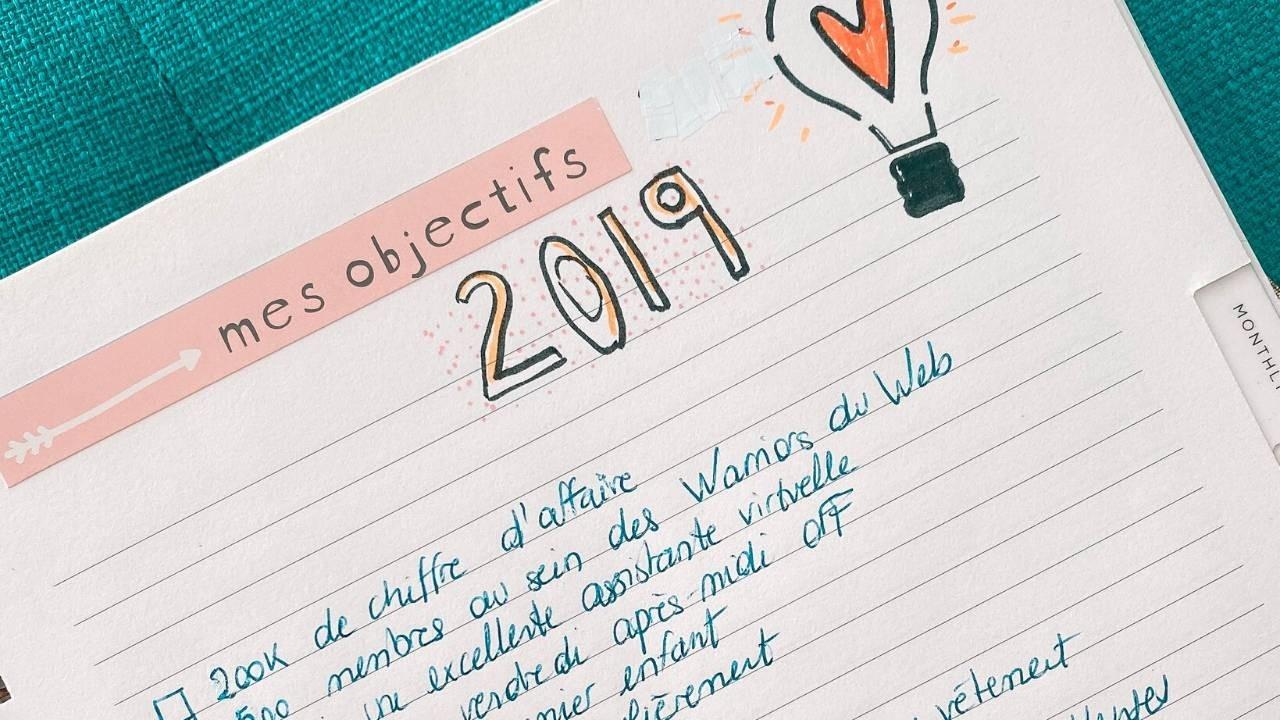 mes objectifs
2019
MONTHL
200K de chiffre d'affaire
500 membres au sein des Warriors du Web
une excellente assistante virtuelle
vendredi après-midi off
enfant
vêtement